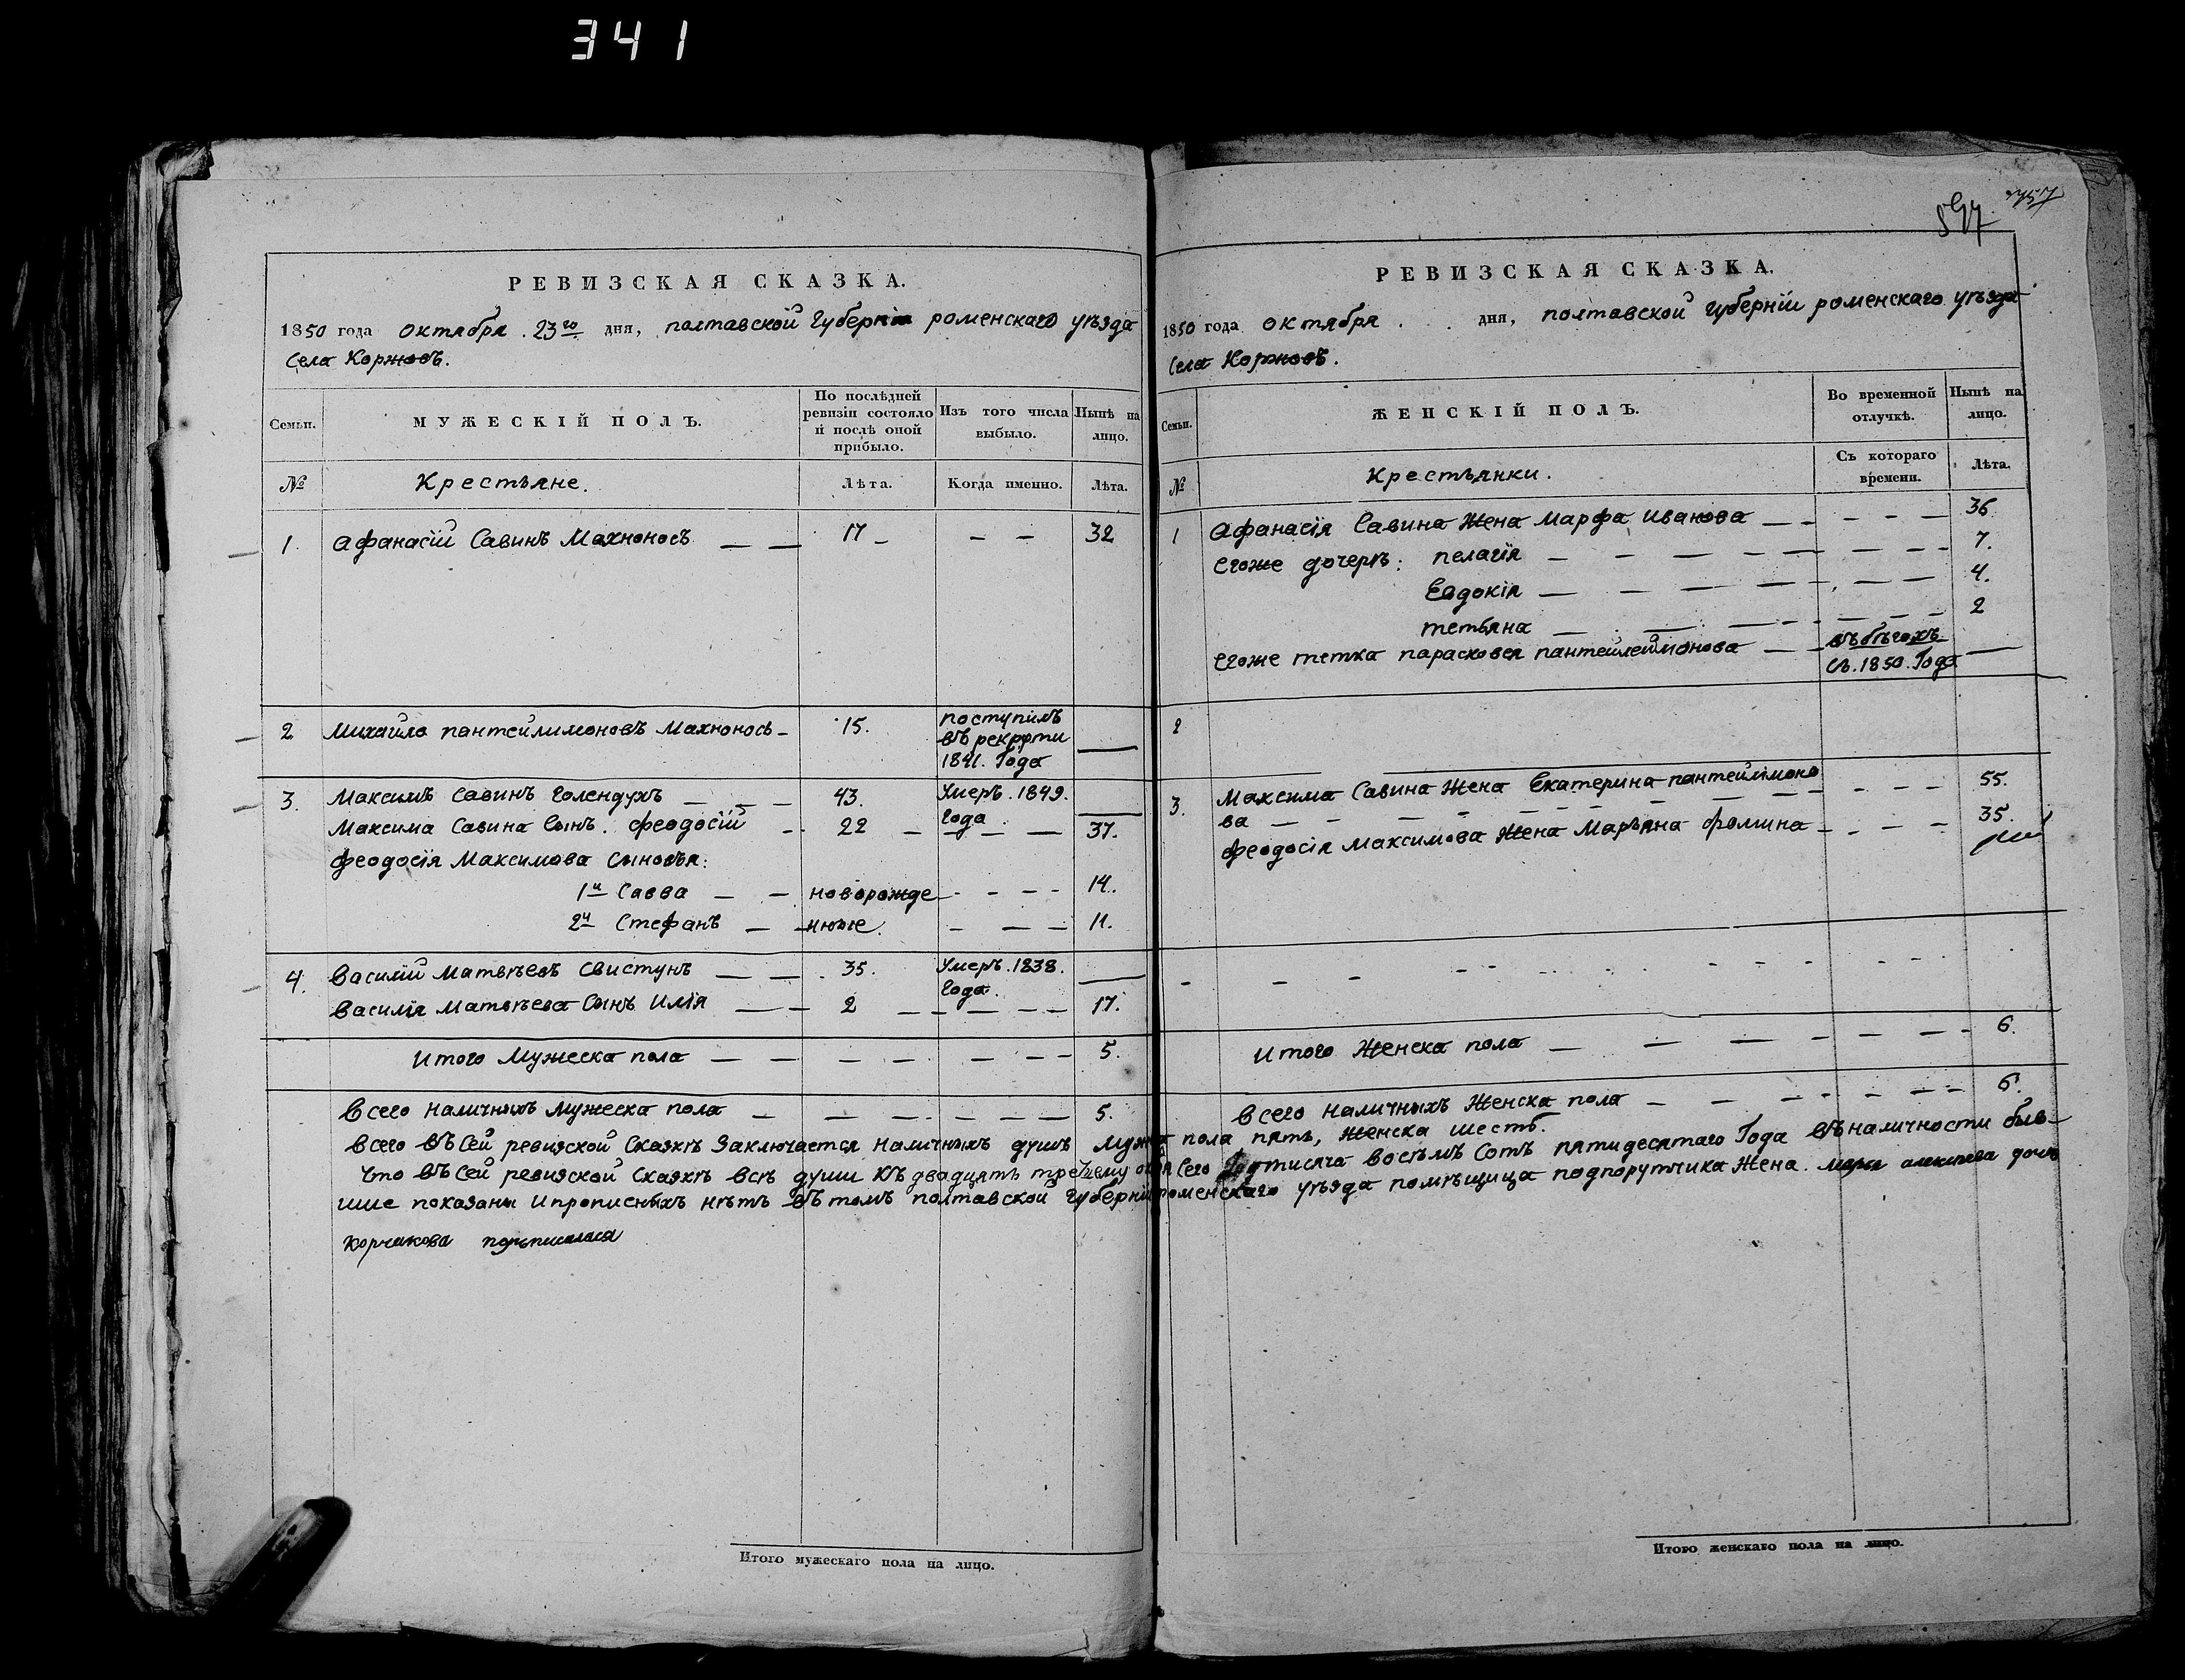 341
РЕВИЗСКАЯ СКАЗКА.
1850 года октября . 23го дня, полтавской Губерніи роменскаго уѣзда
Села Коржовъ.
Семьи. МУЖЕСКІЙ ПОЛЪ. По послѣдней ревизіи состояло и послѣ оной прибыло. Изъ того числа выбыло. Нынѣ на лицо.
№ Крестьяне. Лѣта. Когда именно. Лѣта.
1. афанасій Савинъ Махноносъ 17 32
2 Михайло пантейлимоновъ Махноносъ 15. поступилъ
въ рекруты
1841. Года
3. Максимъ Савинъ Голендухъ 43. Умеръ. 1849.
Года
Максима Савина Сынъ. феодосій 22 37.
феодосія Максимова Сыновья:
1й Савва новорожде 14.
2й Стефанъ ныые. 11.
4. Василій Матвѣевъ Свистунъ 35. Умеръ. 1838.
Года.
Василія Матвѣева Сынъ Илія 2 17.
Итого Мужеска пола 5.
Всего наличныхъ мужеска пола 5.
РЕВИЗСКАЯ СКАЗКА.
1850 года октября . . дня, полтавской Губерніи роменскаго уѣзда
Села Коржовъ.
Семьи. ЖЕНСКІЙ ПОЛЪ. Во временной отлучкѣ. Нынѣ на лицо.
№ Крестьянки. Съ котораго времени. Лѣта.
1 Афанасія Савина Жена Марфа Иванова 36
Егоже дочери: пелагія 7.
Евдокія 4.
тетьяна 2
Егоже тетка парасковея пантейлеймонова въ бѣгахъ
съ. 1850. Года
2
3. Максима Савина Жена Екатерина пантейлимоно 55.
ва
феодосія Максимова Жена Марьяна фомина 35.
Итого Женска пола 6.
Всего наличныхъ Женска пола 6.
Всего въ Сей ревизской Сказкѣ Заключается наличныхъ душъ Мужеска пола пять, Женска шесть.
Что въ Сей ревизской Сказкѣ всѣ души Къ двадцать третьему Сего тисяча восѣмъ Сотъ пятидесятаго Года въ наличности быв-
шие показаны и прописныхъ нѣтъ въ томъ полтавской Губерніи роменскаго уѣзда помѣщица подпорутчика Жена
Корчакова подписалася
Итого мужескаго пола на лицо.
Итого женскаго пола на лицо.